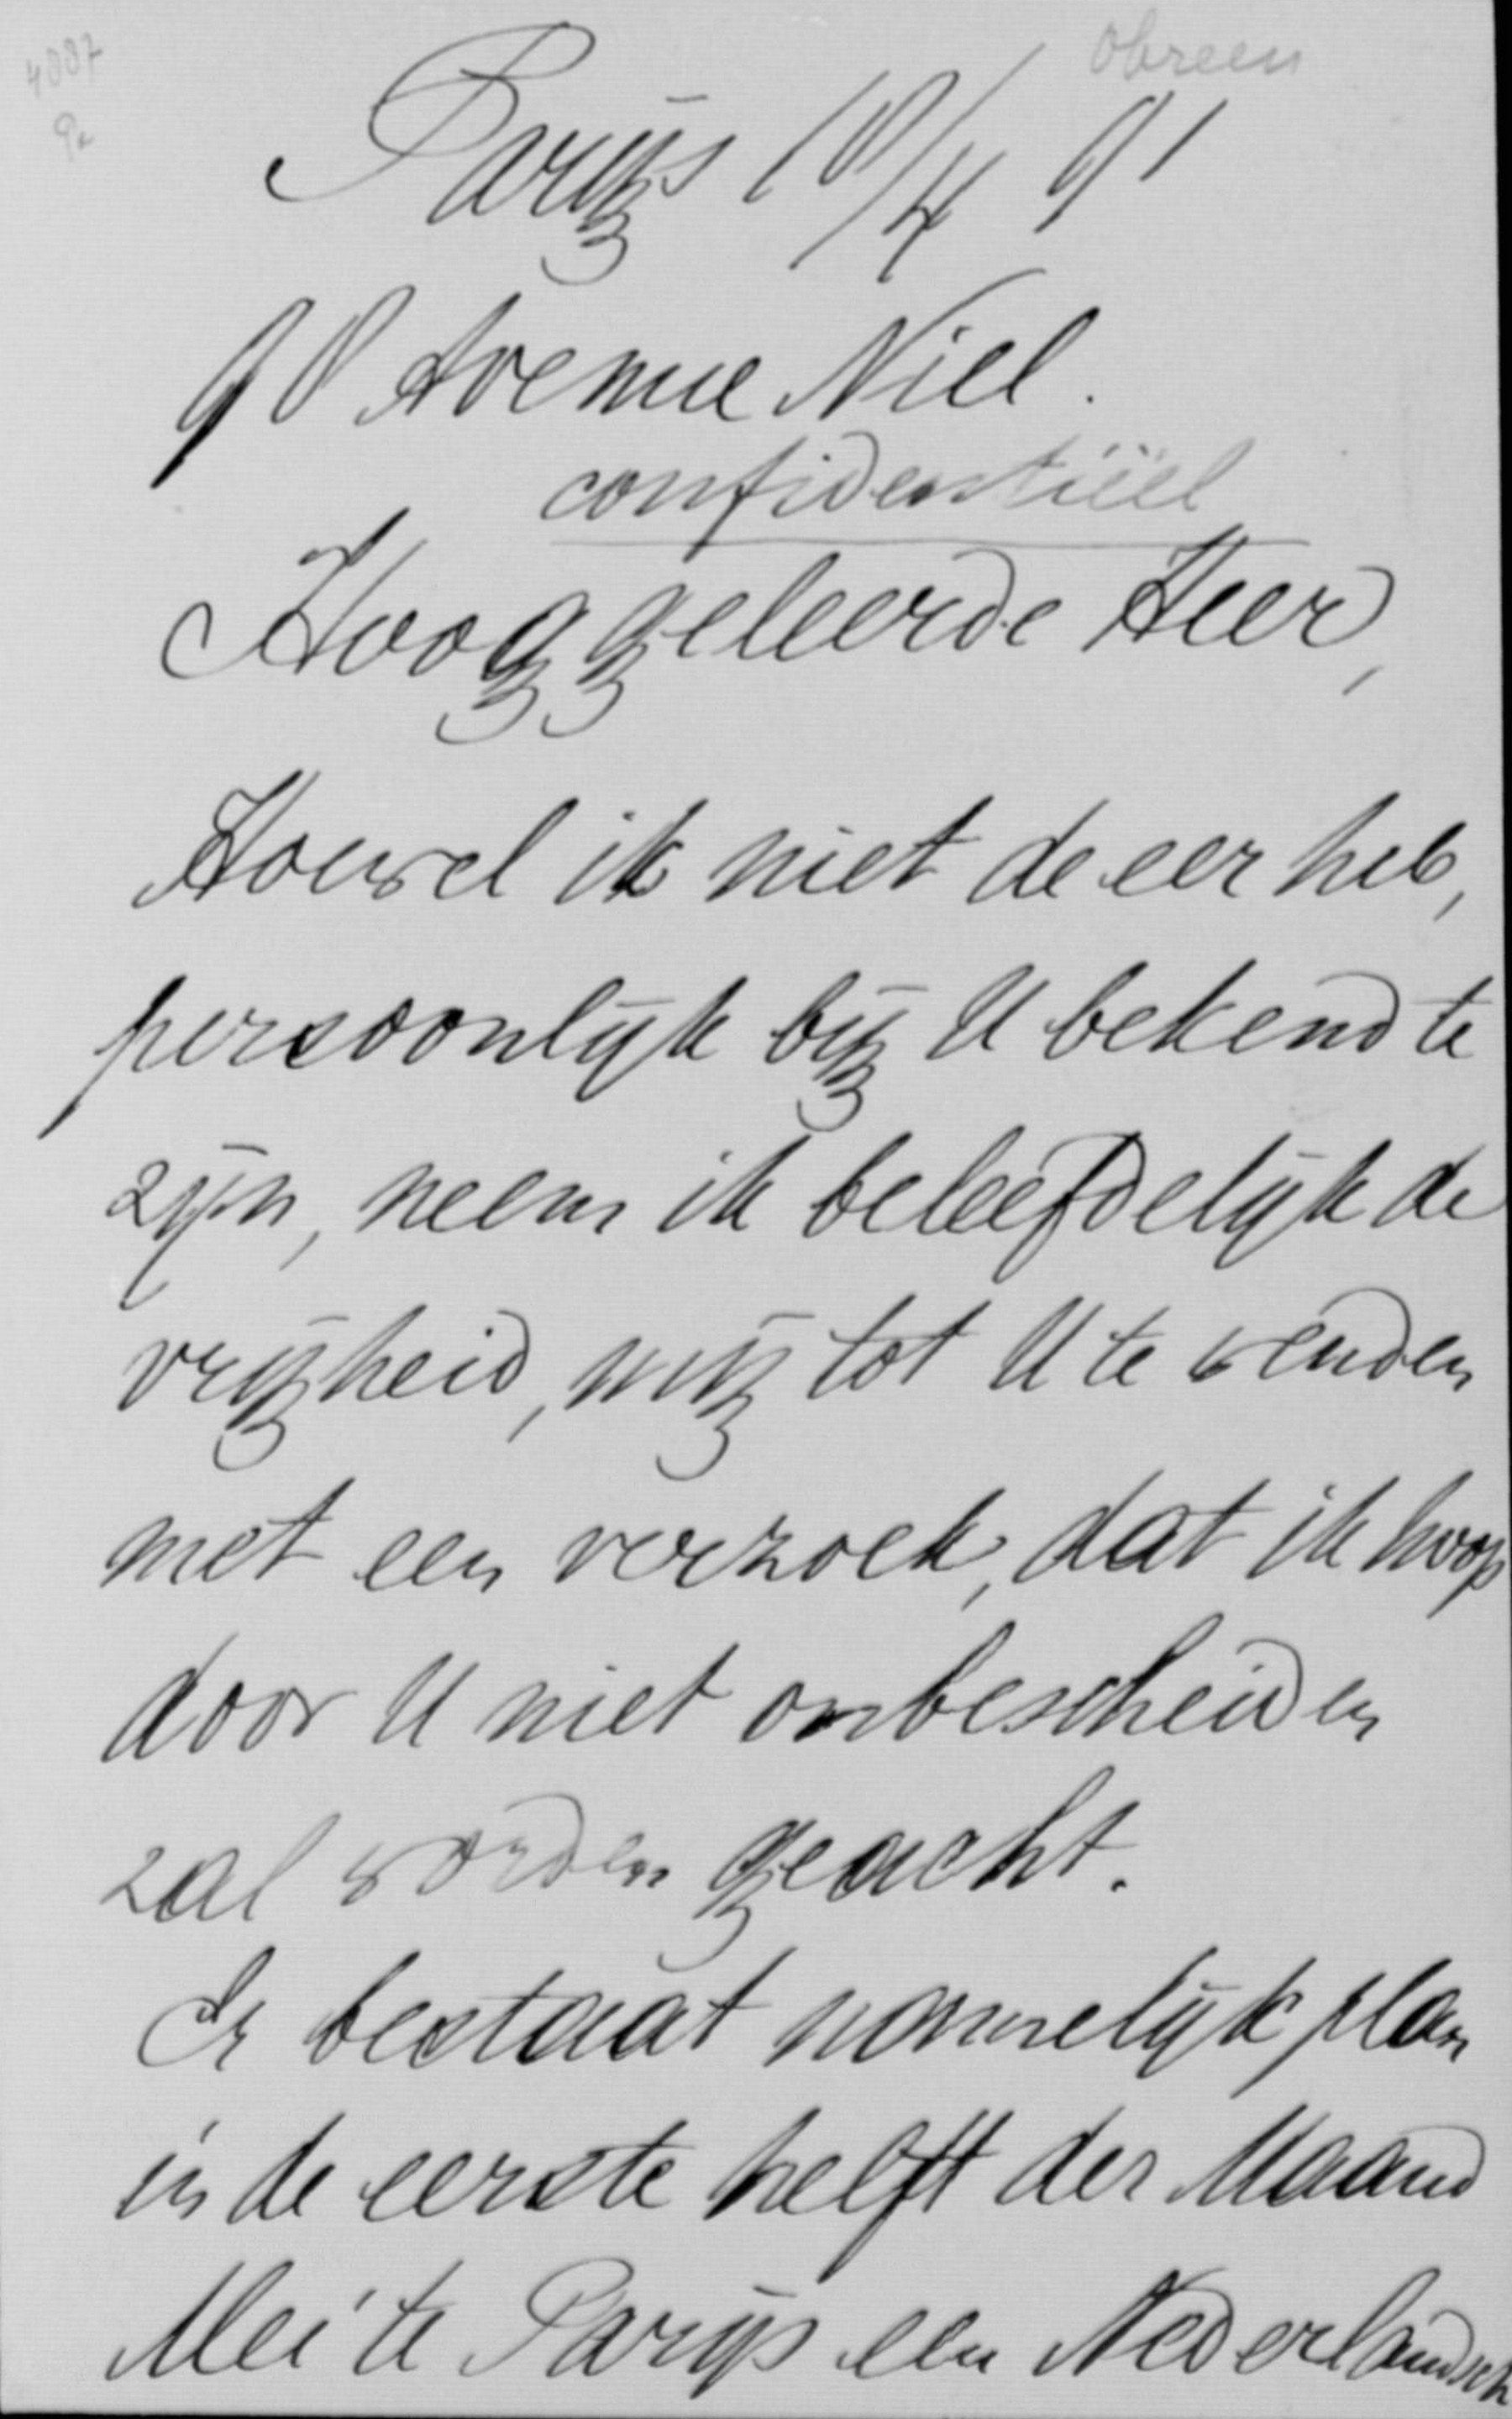 4087
Obreen
Parijs 18/4 91
98 Avenue Niel.
confidentiëel
Hooggeleerde Heer,
Hoewel ik niet de eer heb,
persoonlijk bij U bekend te
zijn, neem ik beleefdelijk de
vrijheid, mij tot U te wenden
met een verzoek, dat ik hoop
door U niet onbescheiden
zal worden geacht.
Er bestaat namelijk plan
in de eerste helft der Maand
Mei te Parijs een Nederlandsch